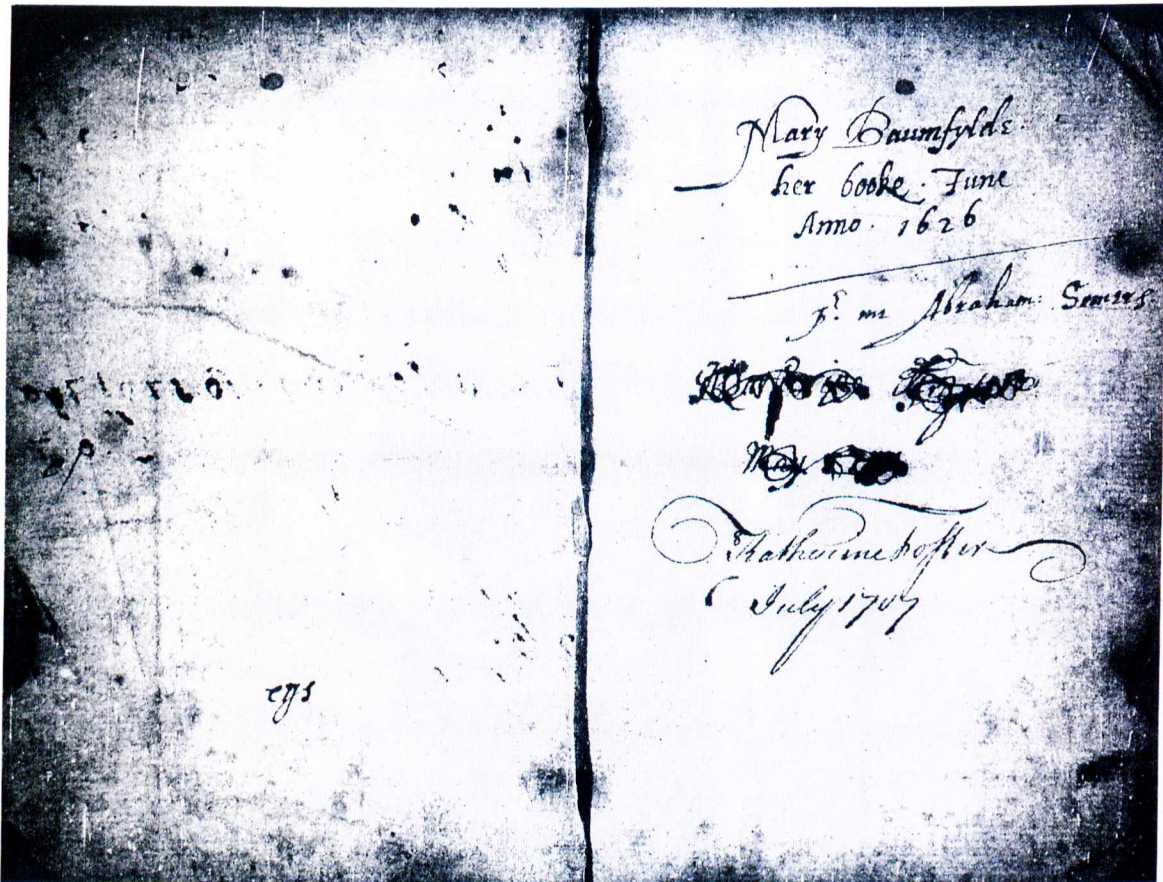 eys
Mary Baumfylde
her booke. June
Anno. 1626
pr. me Abraham: Somers
Katherine foster
July 1707